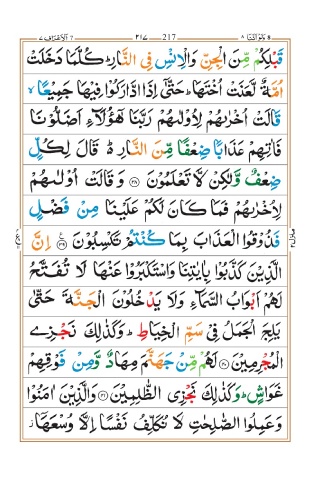 وَلَوْ اَنَّنَا ٨ ٢١٧ 217 اَلْاَعْرَاف ٧
قَبْلِكُمْ مِّنَ الْجِنِّ وَالْاِنْسِ فِى النَّارِ ؕ كُلَّمَا دَخَلَتْ
اُمَّةٌ لَّعَنَتْ اُخْتَهَا ؕ حَتّٰۤى اِذَا ادَّارَكُوْا فِيْهَا جَمِيْعًا ۙ
قَالَتْ اُخْرٰىهُمْ لِاُوْلٰىهُمْ رَبَّنَا هٰۤؤُلَآءِ اَضَلُّوْنَا
فَاٰتِهِمْ عَذَابًا ضِعْفًا مِّنَ النَّارِ ؕ قَالَ لِكُلٍّ
ضِعْفٌ وَّلٰكِنْ لَّا تَعْلَمُوْنَ ۝۳۸ وَ قَالَتْ اُوْلٰىهُمْ
لِاُخْرٰىهُمْ فَمَا كَانَ لَكُمْ عَلَيْنَا مِنْ فَضْلٍ
فَذُوْقُوا الْعَذَابَ بِمَا كُنْتُمْ تَكْسِبُوْنَ ۝۳۹ اِنَّ
الَّذِيْنَ كَذَّبُوْا بِاٰيٰتِنَا وَاسْتَكْبَرُوْا عَنْهَا لَا تُفَتَّحُ
لَهُمْ اَبْوَابُ السَّمَآءِ وَلَا يَدْخُلُوْنَ الْجَنَّةَ حَتّٰى
يَلِجَ الْجَمَلُ فِىْ سَمِّ الْخِيَاطِ ؕ وَكَذٰلِكَ نَجْزِى
الْمُجْرِمِيْنَ ۝۴۰ لَهُمْ مِّنْ جَهَنَّمَ مِهَادٌ وَّمِنْ فَوْقِهِمْ
غَوَاشٍ ؕ وَكَذٰلِكَ نَجْزِى الظّٰلِمِيْنَ ۝۴۱ وَالَّذِيْنَ اٰمَنُوْا
وَعَمِلُوا الصّٰلِحٰتِ لَا نُكَلِّفُ نَفْسًا اِلَّا وُسْعَهَاۤ